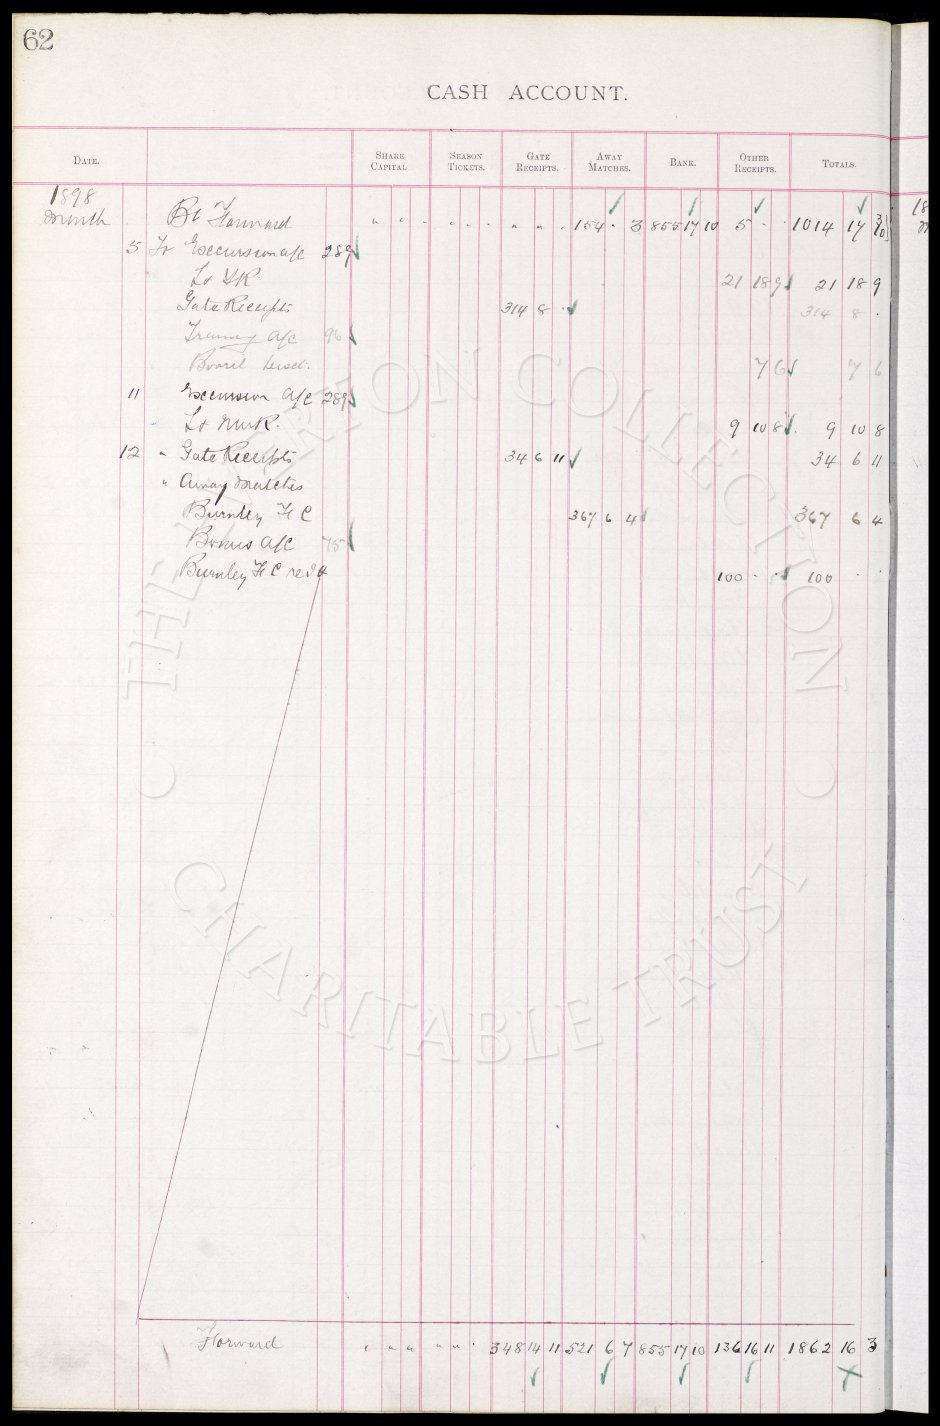 62
CASH ACCOUNT.
DATE. SHARE CAPITAL SEASON TICKETS. GATE RECEIPTS. AWAY MATCHES. BANK. OTHER RECEIPTS. TOTALS.
1898
Bt Forward " " " " " " " " . 154 . 3 855 17 10 5 . . 1014 17
5 To Excursion a/c 289 ✓
L & YR 21 18 9 ✓ 21 18 9
Gate Receipts 314 8 . ✓ 314 8 .
a/c 96 ✓
7 6 ✓ 7 6
11 Excursion a/c 289 ✓
L & NWR. 9 10 8 ✓ 9 10 8
12 " Gate Receipts 34 6 11 ✓ 34 6 11
" Away Matches
Burnley F C 367 6 4 367 6 4
Bonus a/c 75 ✓
Burnley F C 100 . . ✓ 100 . .
Forward " " " " " . 348 14 11 521 6 7 855 17 10 136 16 11 1862 16 3
✓ ✓ ✓ ✓ X
THE COLLECTION
CHARITABLE TRUST